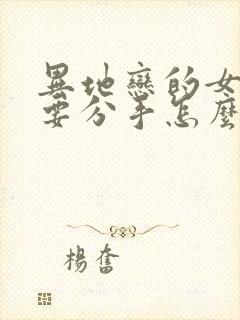 異地戀的女
要分手怎麼
楊奮